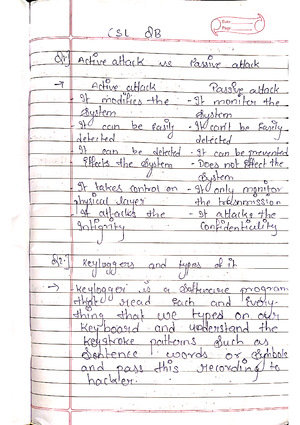 Date
Page
CSL QB
Q.1] Active attack vs Passive attack
→ Active attack Passive attack
- It modifies the - It monitor the
System System
- It can be Easily - It can't be Easily
detected detected
- It can be detected - It can be prevented
- Effects the System - Does not Effect the
System
- It takes control on - It only monitor
physical layer the transmission
- It attacks the - It attacks the
Intigrity Confidentiality
Q.2.] Keyloggers and types of it
→ Keylogger is a Software program
that read Each and Every-
thing that we typed on our
Keyboard and understand the
Keystroke patterns Such as
Sentence words or Symbols
and pass this recording to
hacker.